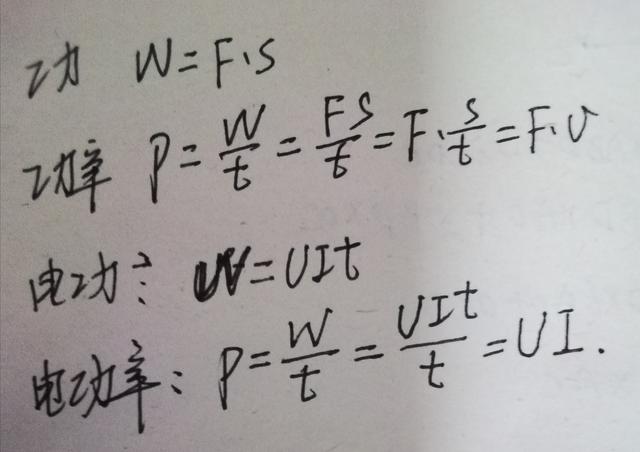 功 W=F·s
功率 P=W/t=FS/t=F·s/t=F·v
电功: W=UIt
电功率: P=W/t=UIt/t=UI.